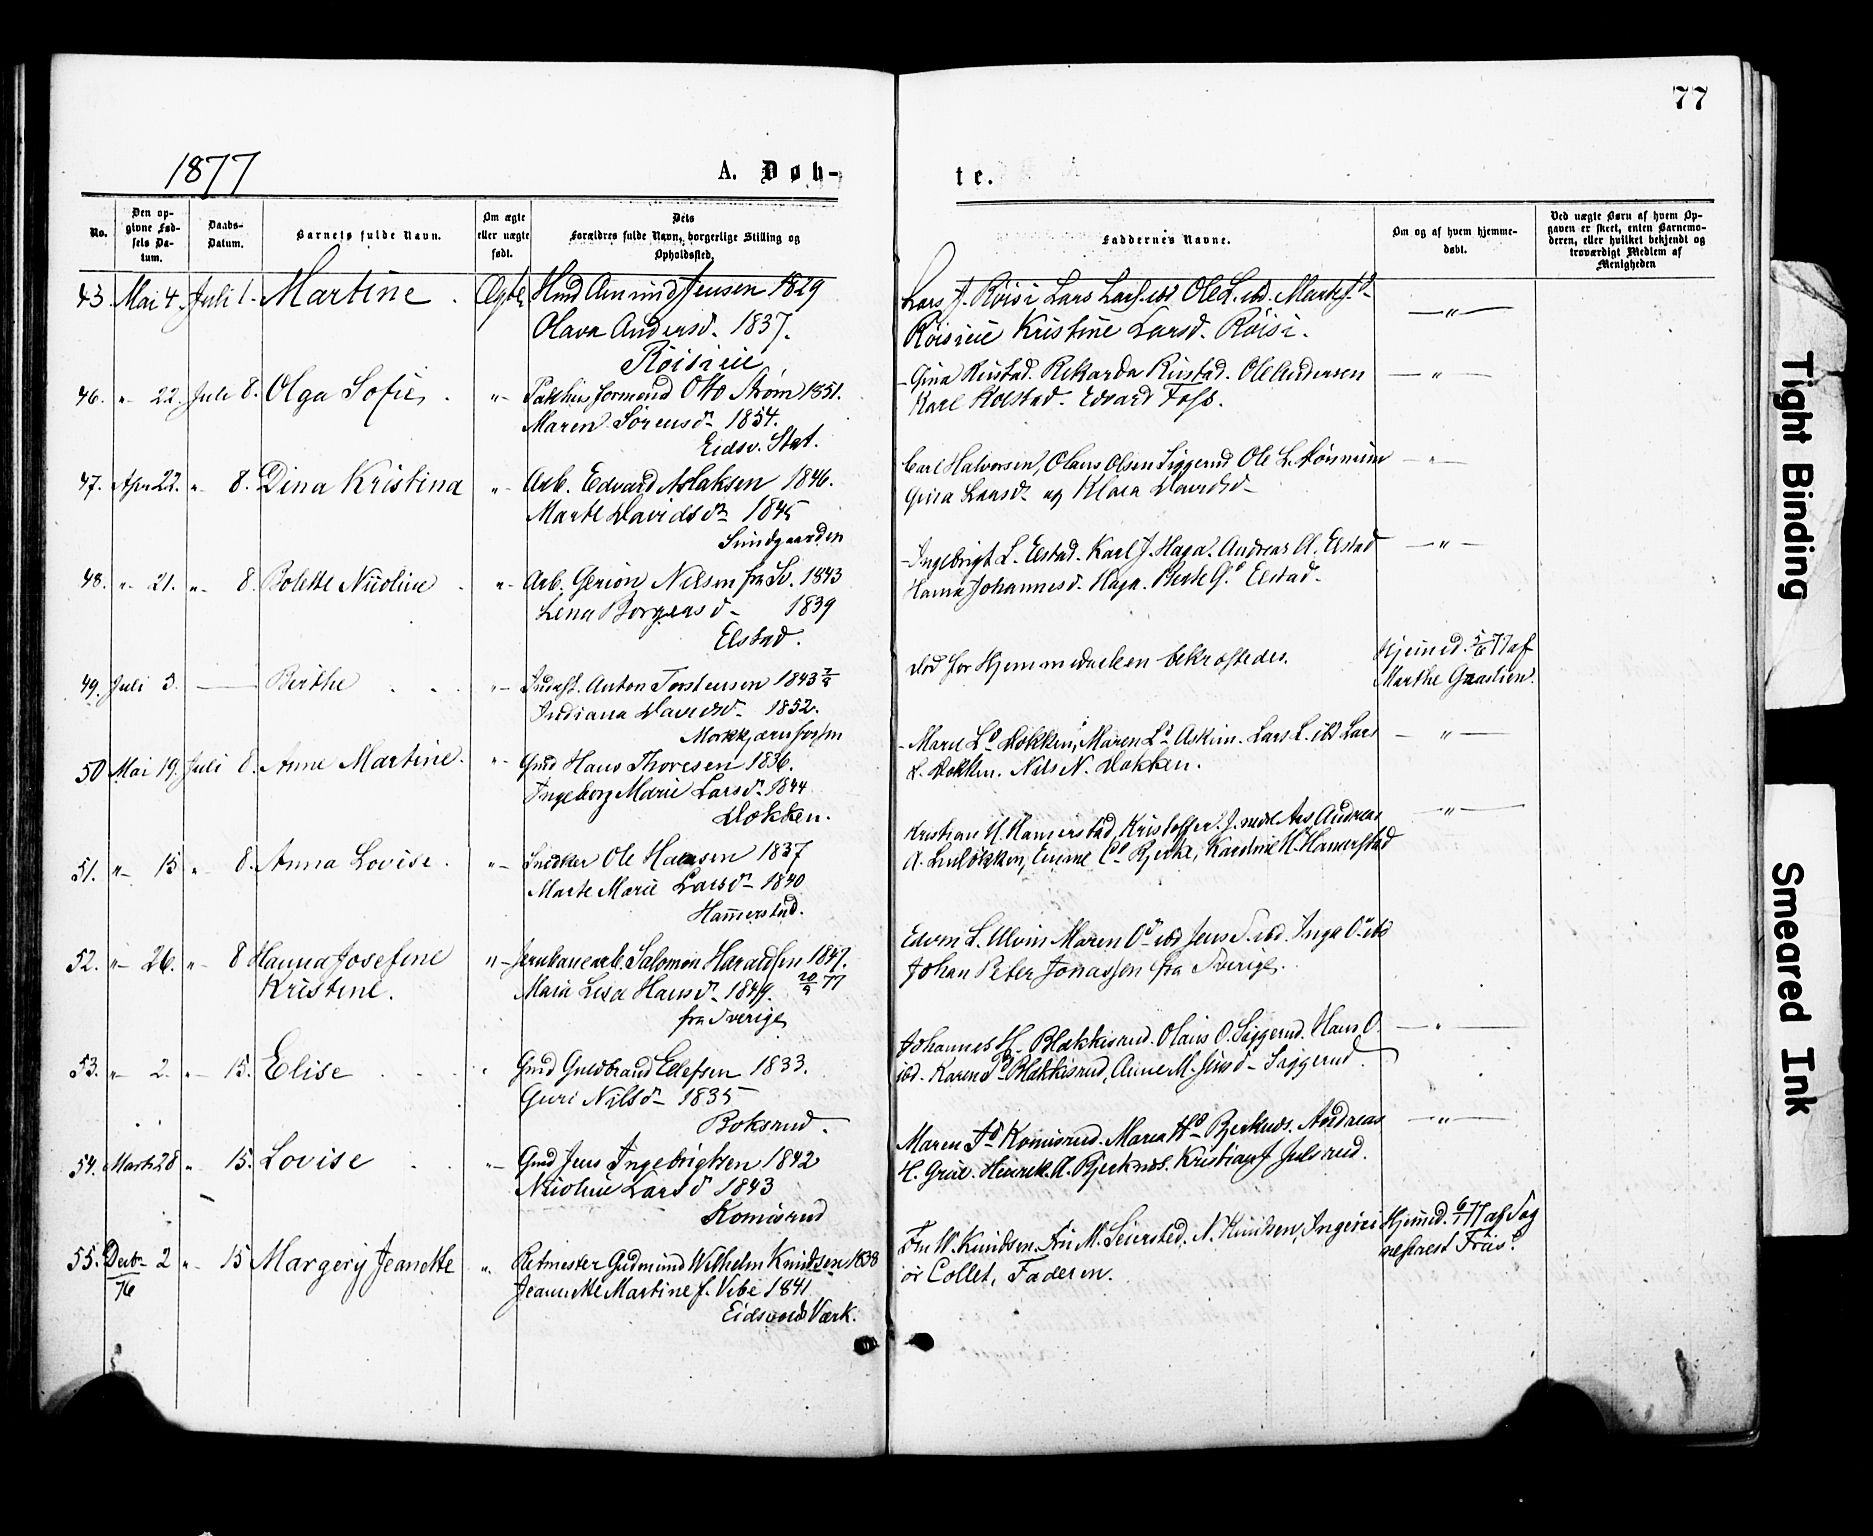 77
1877
A. Døb-
te.
No.
Den op-
givne Fød-
sels Da-
tum.
Daabs-
Datum.
Barnets fulde Navn.
Om ægte
eller uægte
født.
Dets
Forældres fulde Navn, borgerlige Stilling og
Opholdssted.
Faddernes Navne.
Om og af hvem hjemme-
døbt.
Ved uægte Børn af hvem Op-
gaven er skeet, enten Barnemo-
deren, eller hvilket bekjendt og
troværdigt Medlem af
Menigheden
Mai 4. Juli 1. Martine Ægte Hmd Amund Jensen 1829
Olava Andersd. 1837.
Røisieie
Lars J. Røisi Lars Lars. ibd Ole L. ibd.
Røisieie Kristine Larsd. Røisi.
46. " 22. Juli 8. Olga Sofie " Pakhusformand Otto Strøm 1851.
Maren Sørensd. 1854.
Eidsv. Stat.
Gina Rustad. Rikarda Rustad. Ole Andersen
Karl Kolstad. Edvard Foss.
47. Apr 22. " 8. Dina Kristina " Arb. Edvard Aslaksen 1846.
Marte Davidsd. 1845
Sundgaarden
Carl Halvorsen, Olaus Olsen Siggerud Ole L.
Gina Larsd. og Klara Davidsd.
48. " 21. " 8. Bolette Nicoline " Arb. Nilsen fra Sv. 1843
Lena Borgersd. 1839
Elstad.
Ingebrigt L. Elstad. Karl J. Haga. Andreas A. Elstad
Hanna Johannesd. Haga. Berte G. Elstad.
49. Juli 3. Berthe " Anton Torstensen 1843
Indiana Davidsd. 1852.
Morkkjærnfossen
død før Hjemmedaaben bekræftedes.
Hjemmd. 5/6 77 af
Marthe Graslien.
50 Mai 19. Juli 8. Anne Martine. " Gmd Hans Thoresen 1836.
Ingeborg Marie Larsd. 1844
Dokken.
Marie L. Dokken, Maren L. Askim. Lars L. ibd Lars
L. Dokken. Nils N. Dokken.
51. " 15 " 8. Anna Lovise. " Snedker Ole Hansen 1837
Marte Marie Larsd. 1840
Hammerstad.
Kristian H. Hamerstad, Kristoffer J. Andreas
A. Emme C. Bjerke, Karoline H. Hamerstad
52. " 26. " 8 Hanna Josefine " Jernbanearb. Salomon Haraldsen 1847.
Kristine.
Maria Lisa Hansd. 1849. 77
fra Sverige
Edvin L. Ulvin Maren O. ibd Jens S. ibd. Inga O. ibd
Johan Peter Jonassen fra Sverige.
53. " 2. " 15. Elise " Gmd Guldbrand Ellefsen 1833.
Guri Nilsd. 1835
Boksrud.
Johannes H. Blakkisrud. Olaus O. Siggerud. Hans O.
ibd. Karen P. Blakkisrud, Anne M. Jensd. Siggerud.
54. Marts 28 " 15. Lovise " Gmd Jens Ingebrigtsen 1842
Nicoline Larsd. 1843
Komisrud
Maren J. Komisrud. Maria H. Bjerknes. Andreas
H. Henrik A. Bjerknes. Kristian J. Julsrud.
55. Decbr. 2 " 15 Margery Jeanette " Retmester Gudmund Wilhelm Knudsen 1838
76
Jeannette Martine f. Vibe 1841
Eidsvolds Værk.
Fru W. Knudsen. Frk M. Seiersted. N. Knudsen, Ingeniør
Collet, Faderen.
Hjemmd. 6/1 77 af Sog
neprest Friis.
Tight Binding
Smeared Ink